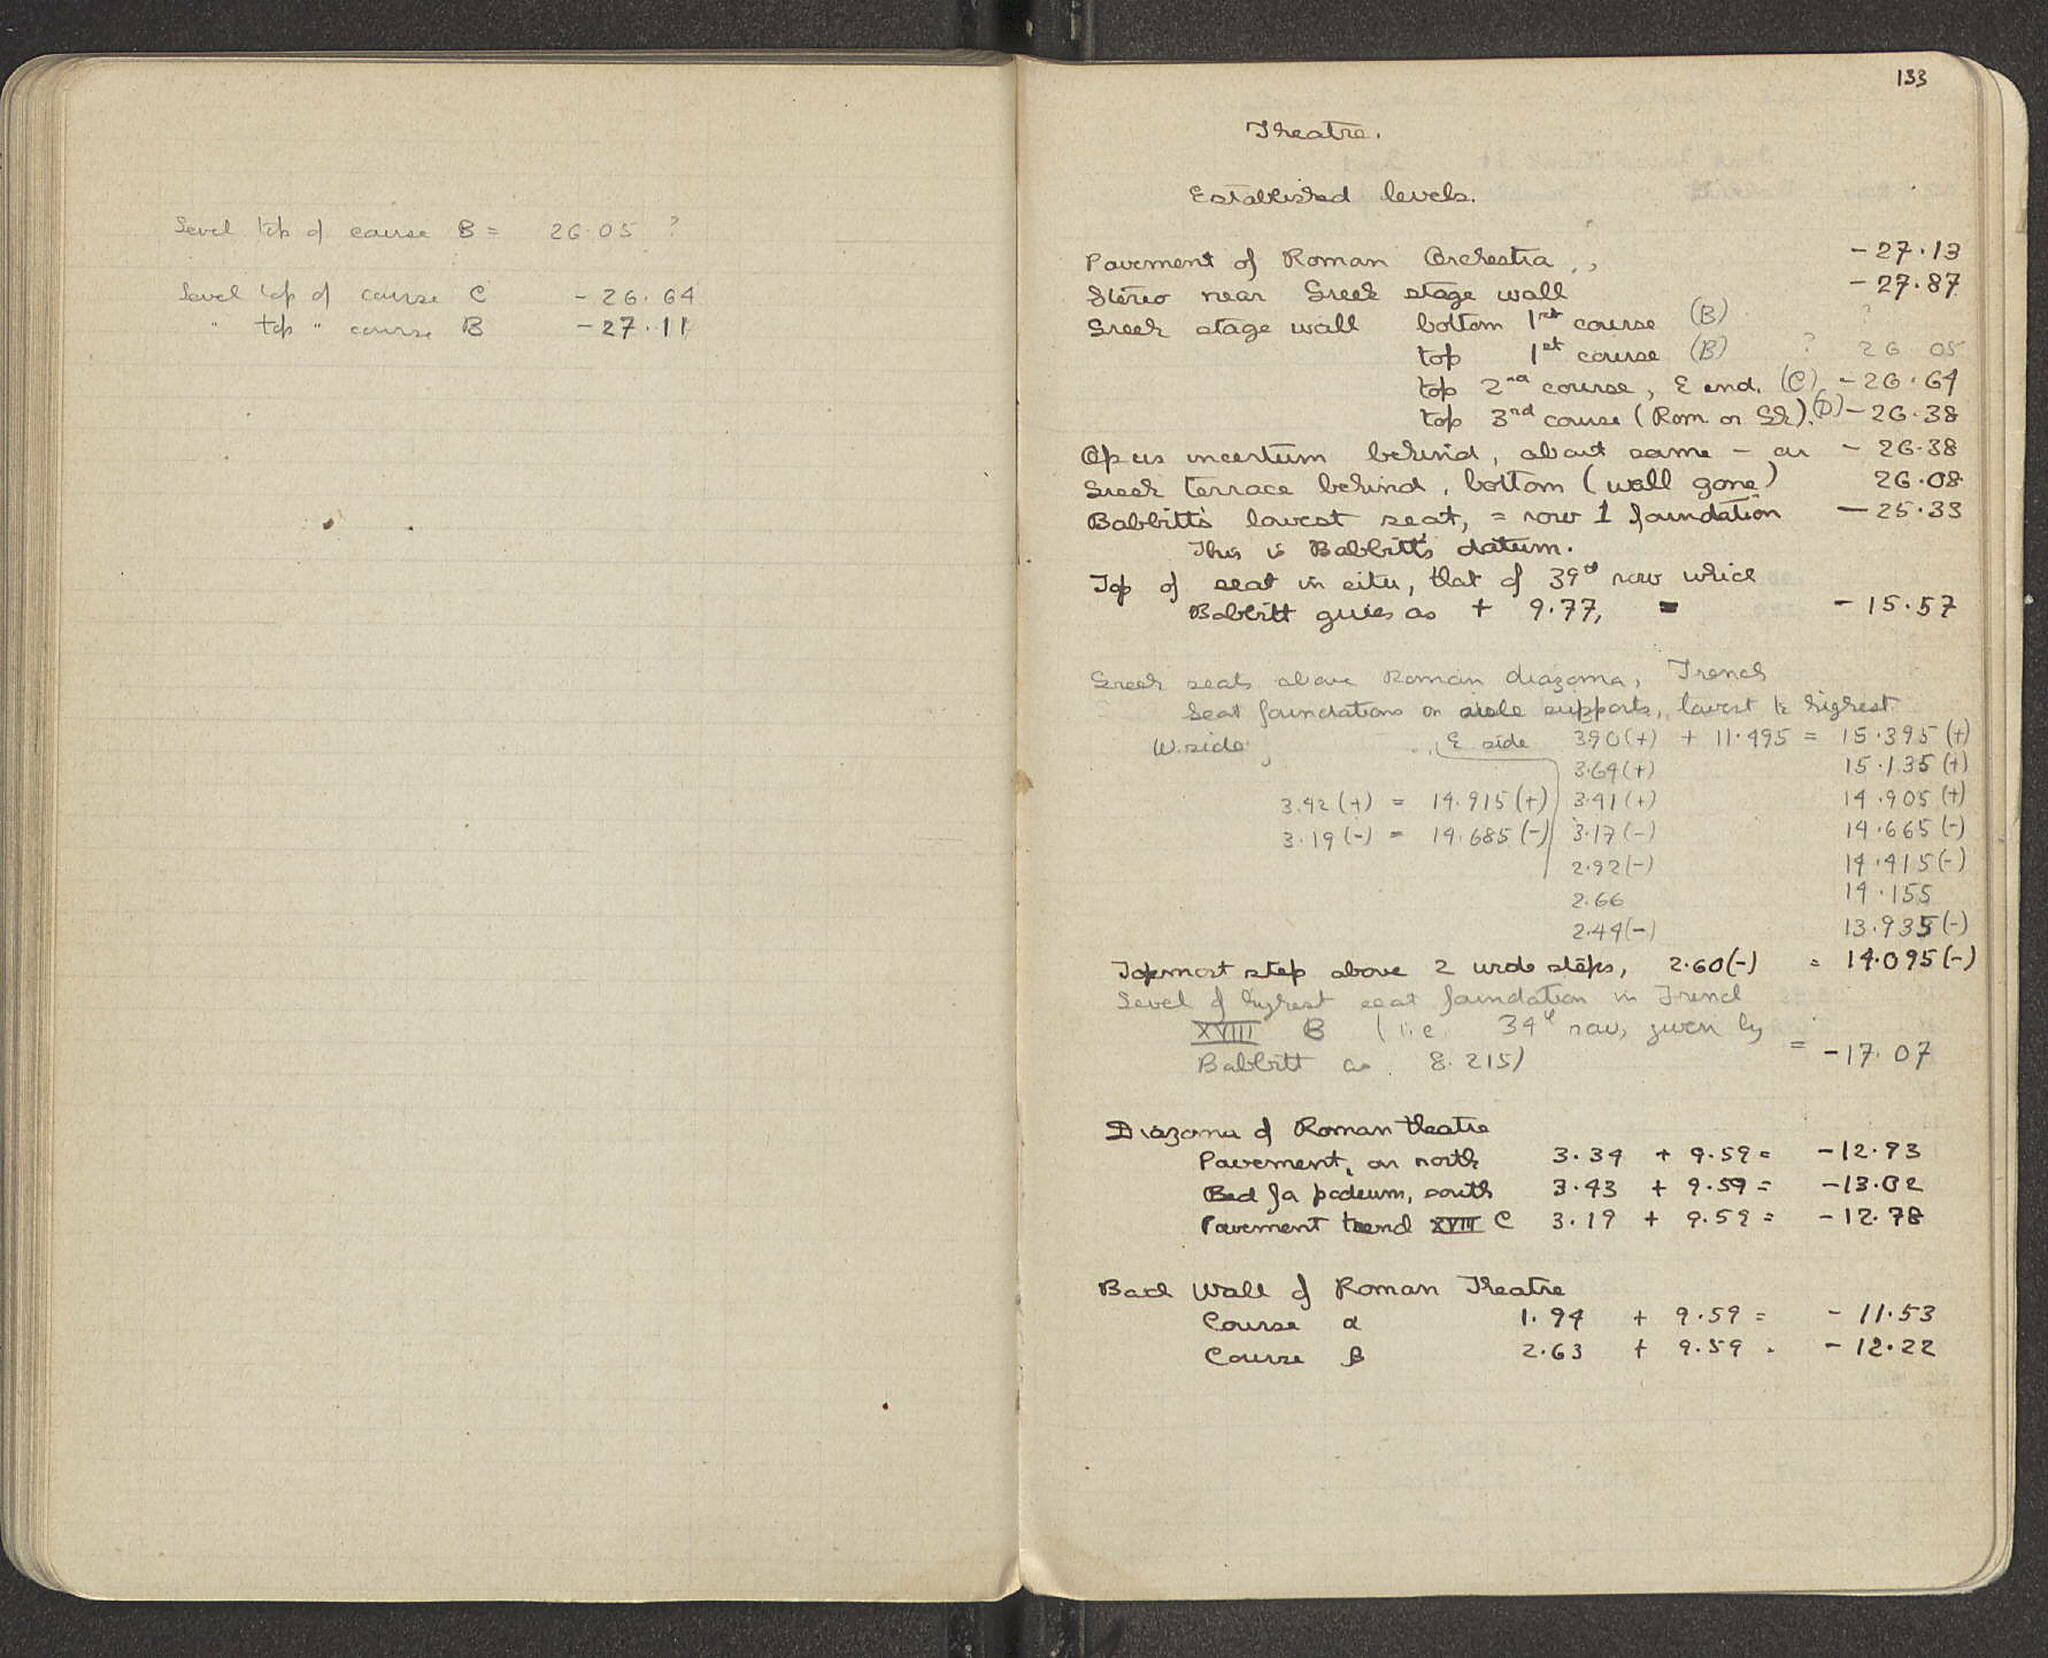 Level top of course B = 26.05 ?
Level top of course C - 26.64
" top " course B - 27.11
133
Theatre.
Established levels.
Pavement of Roman Orchestra, - 27.13
Stereo near Greek stage wall - 27.87
Greek stage wall bottom 1st course (B) ?
top 1st course (B) ? 26 05
top 2nd course, E end. (C) - 26.64
top 3rd course (Rom. or Gk). (D) - 26.38
Opus incertum behind, about same - or - 26.38
Greek terrace behind, bottom (wall gone) 26.08
Babbitt's lowest seat, = row 1 foundation — 25.33
This is Babbitt's datum.
Top of seat in situ, that of 39th row which
Babbitt gives as + 9.77, = - 15.57
Greek seats above Roman diazoma, Trench
Seat foundations on aisle supports, lowest to highest
W. side, E side 3.90(+) + 11.495 = 15.395 (+)
3.64(+) 15.135 (+)
3.42 (+) = 14.915(+) 3.41(+) 14.905 (+)
3.19(-) = 14.685(-) 3.17(-) 14.665(-)
2.92(-) 14.415(-)
2.66 14.155
2.44(-) 13.935(-)
Topmost step above 2 wide steps, 2.60(-) = 14.095(-)
Level of highest seat foundation in Trench
XVIII B (i.e. 34th row, given by
Babbitt as 8.215) = -17.07
Diazoma of Roman theatre
Pavement, on north 3.34 + 9.59 = -12.93
Bed for podium, south 3.43 + 9.59 = -13.02
Pavement trench XVIII C 3.19 + 9.59 = -12.78
Back Wall of Roman Theatre
Course α 1.94 + 9.59 = - 11.53
Course β 2.63 + 9.59 = - 12.22